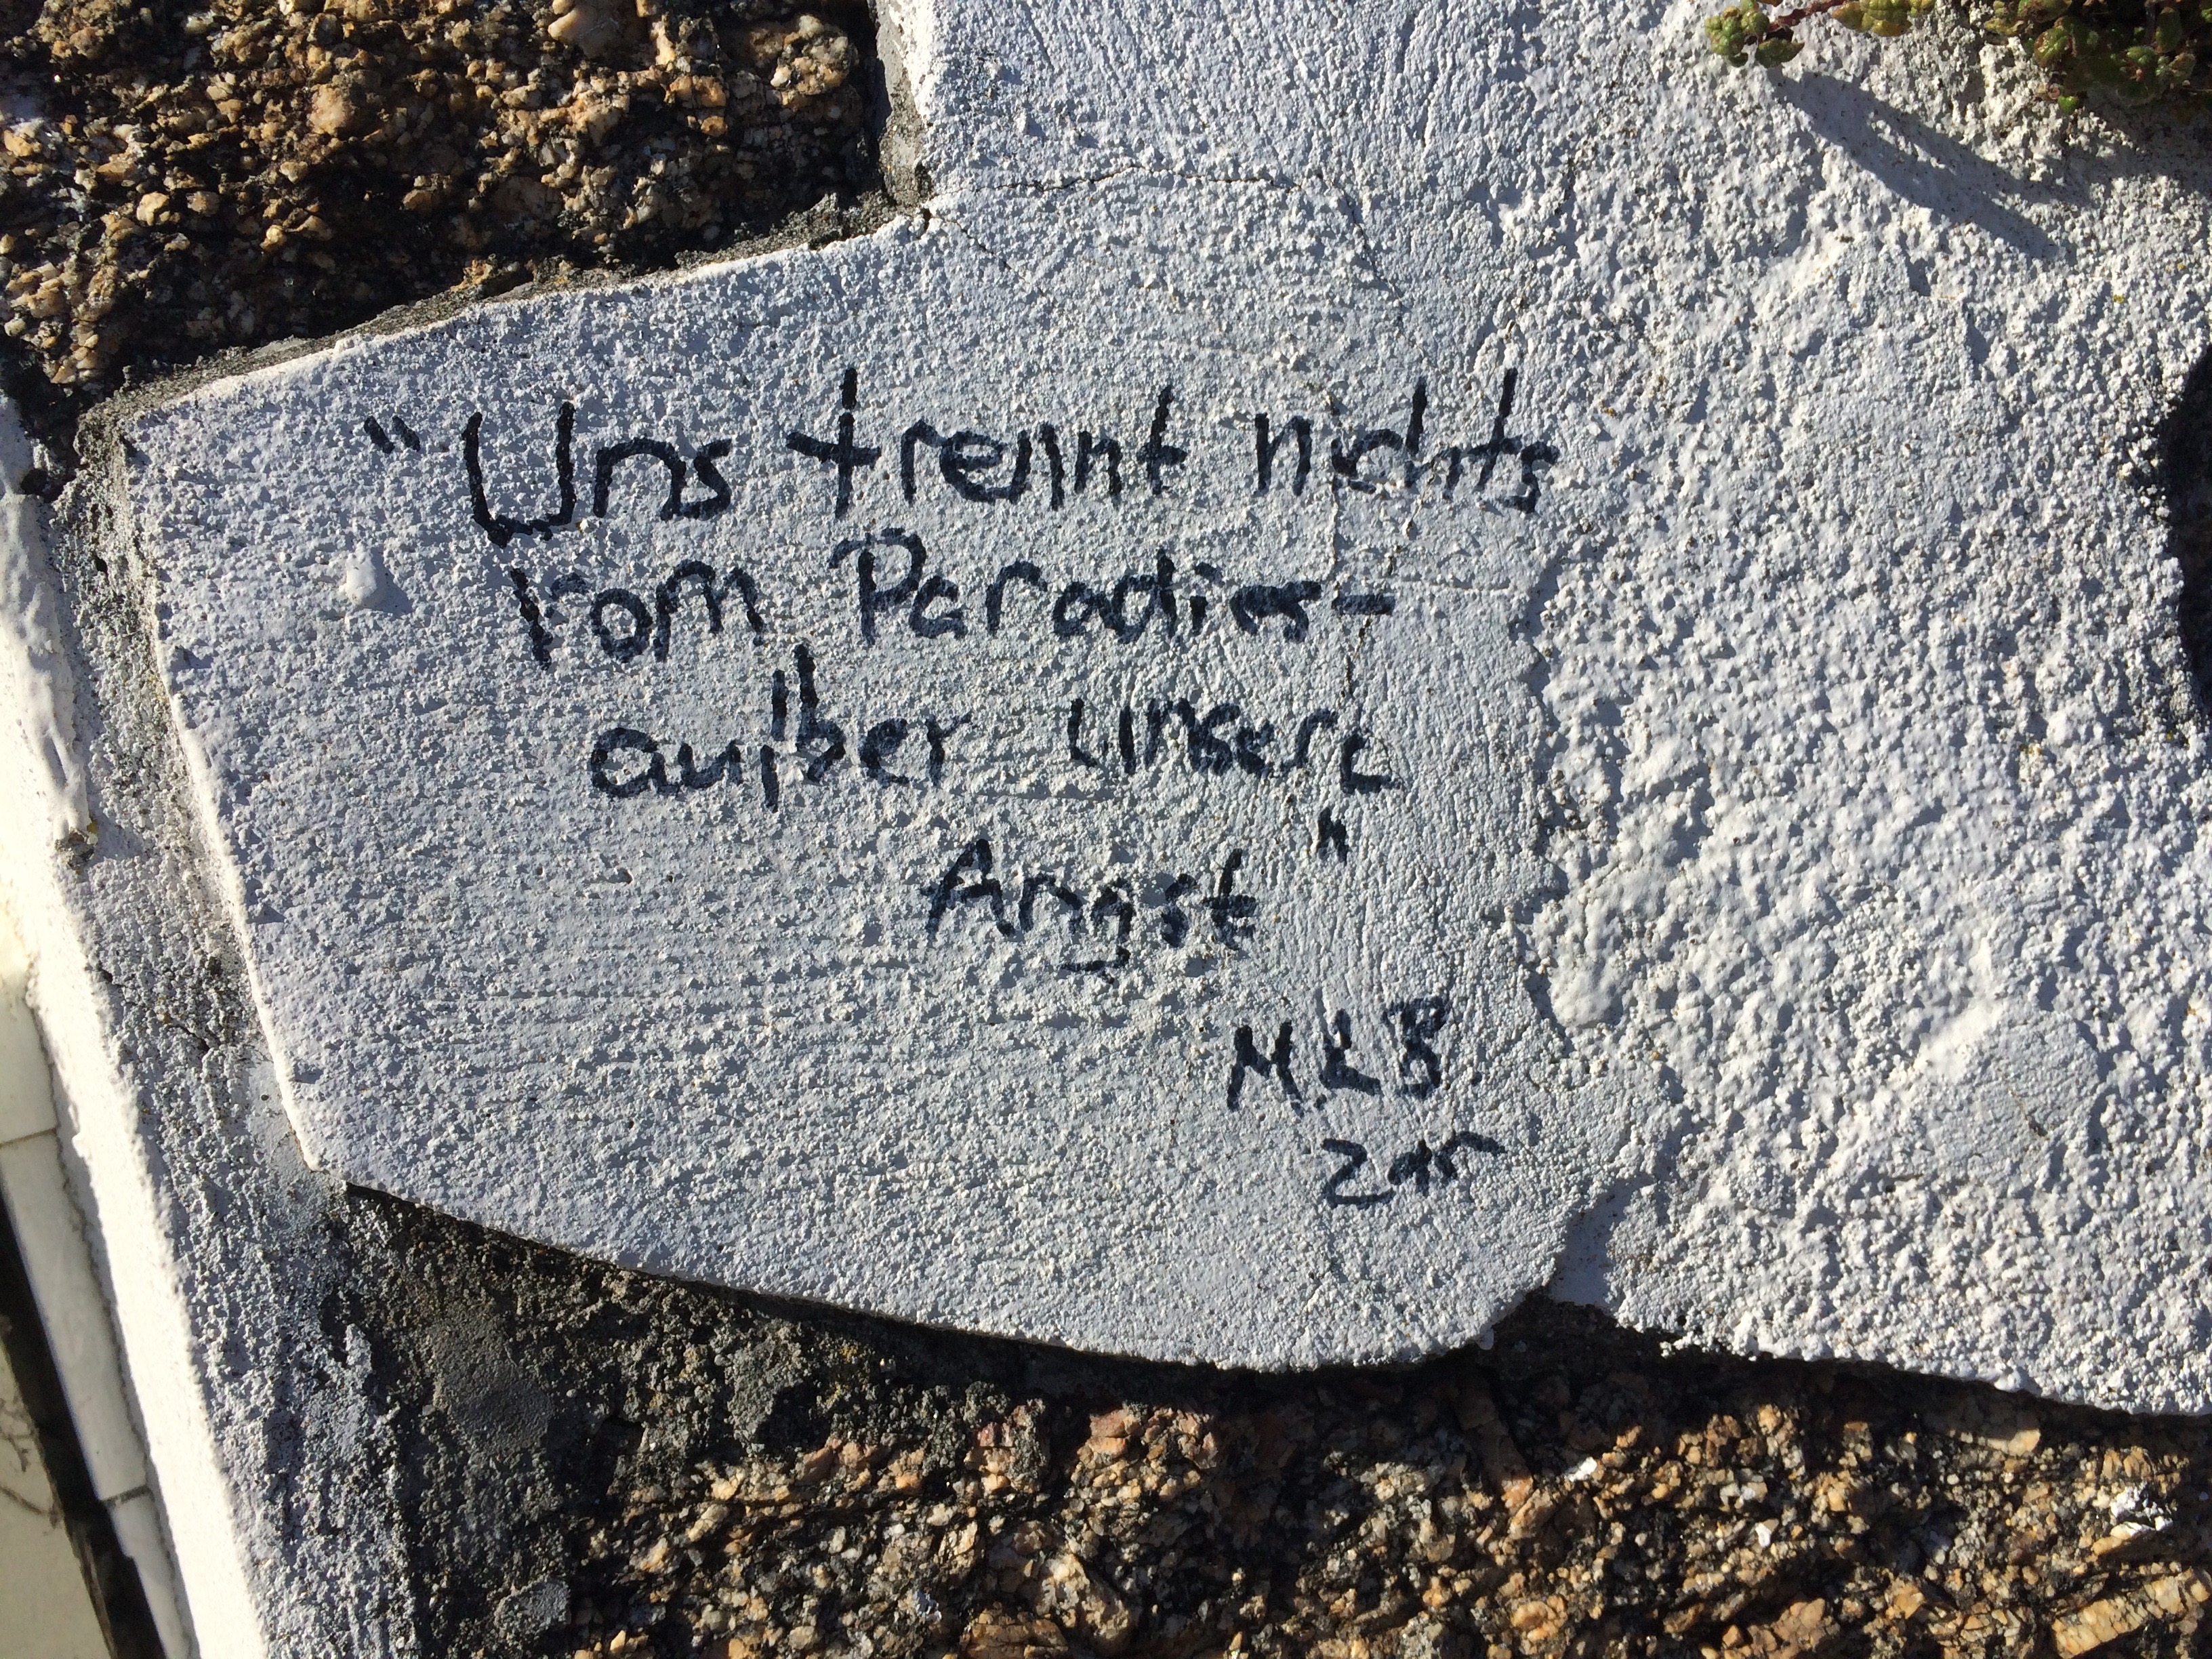 "Uns trennt nichts
vom Paradies-
außer unsere
Angst"
MLB.